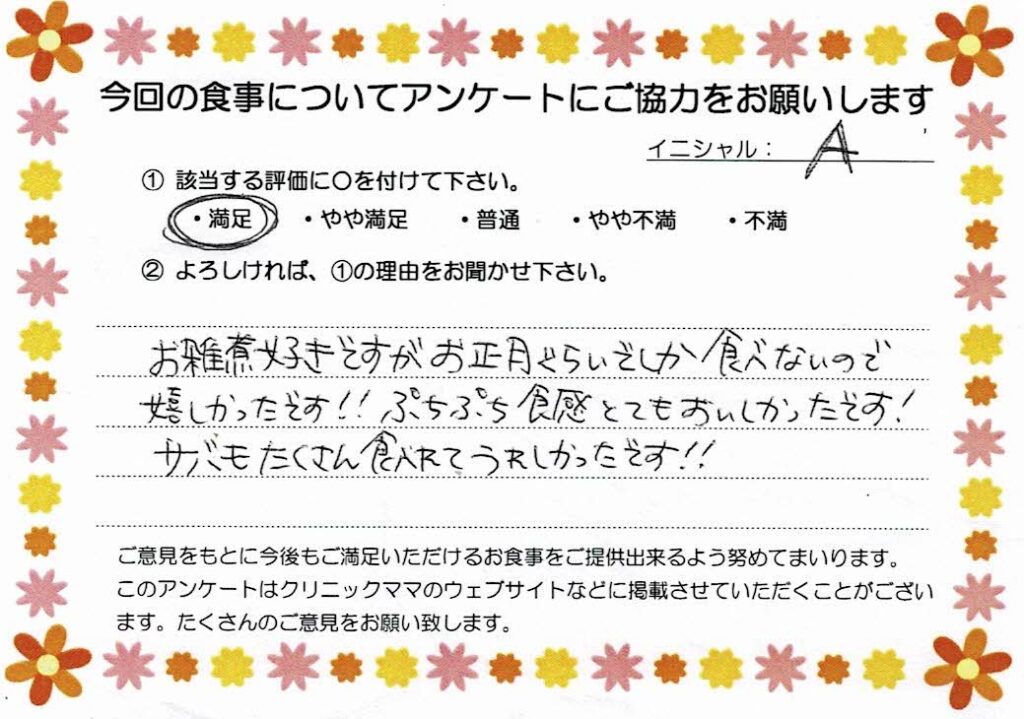 今回の食事についてアンケートにご協力をお願いします
イニシャル： A
① 該当する評価に〇を付けて下さい。
・満足 ・やや満足 ・普通 ・やや不満 ・不満
② よろしければ、①の理由をお聞かせ下さい。
お雑煮好きですがお正月ぐらいでしか食べないので
嬉しかったです!! ぷちぷち食感とてもおいしかったです!
サバもたくさん食べれてうれしかったです!!
ご意見をもとに今後もご満足いただけるお食事をご提供出来るよう努めてまいります。
このアンケートはクリニックママのウェブサイトなどに掲載させていただくことがござい
ます。たくさんのご意見をお願い致します。